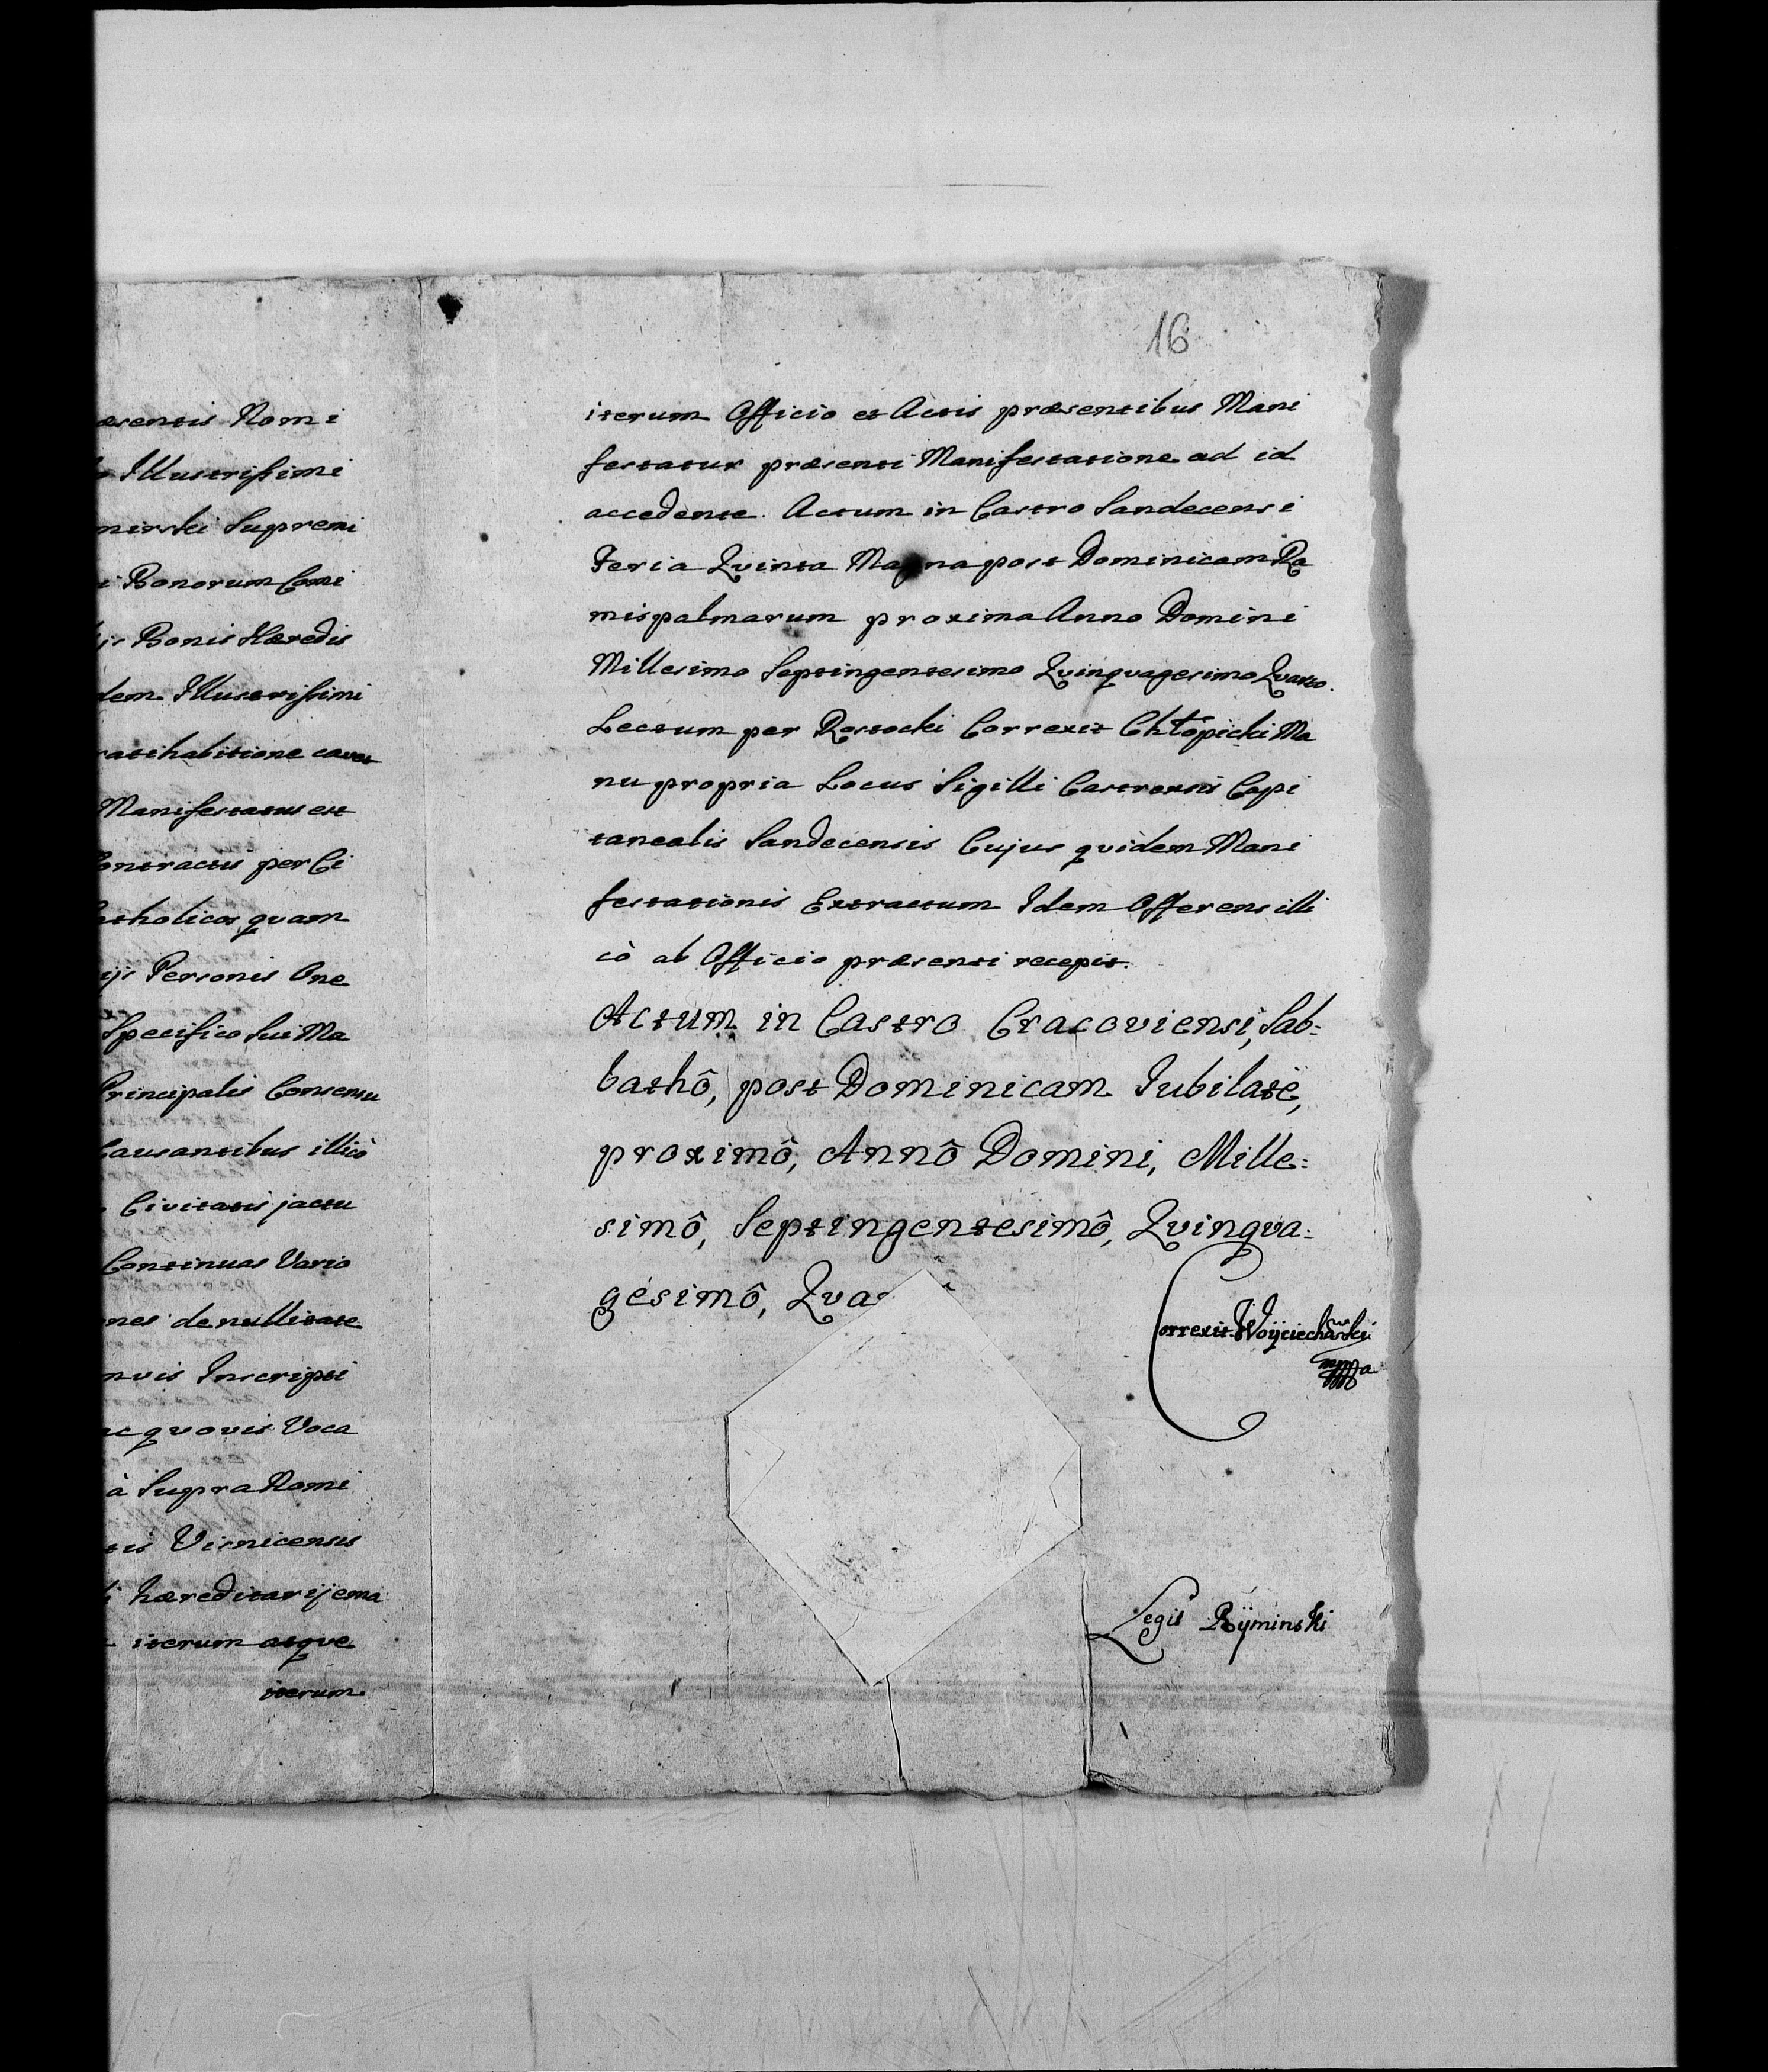 æsentis Nomi
Illustrissimi
mirski Supremi
Bonorum Comi
Bonis Hæredis
dem Illustrissimi
ratihabitione cavet
Manifestatus est
Contractus per Ci
atholicos quam
ijs Personis One
Specifico Sui Ma
Principalis Consensu
Causantibus illicò
Civitatis jactu
Continuas Vario
nes de nullitate
nvis Inscripti
ac qvovis Voca
à Supra Nomi
tis Visnicensis
hæreditarij ema
iterum atqve
iterum
16
iterum Officio et Actis præsentibus Mani
festatur præsenti Manifestatione ad id
accedente. Actum in Castro Sandecensi
Feria Qvinta Magna post Dominicam Ra
mispalmarum proxima Anno Domini
Millesimo Septingentesimo Qvinqvagesimo Qvarto.
Lectum per Rostocki Correxit Chłopicki Ma
nu propria Locus Sigilli Castrensis Capi
tanealis Sandecensis Cujus qvidem Mani
festationis Extractum Idem Offerens illi
cò ab Officio præsenti recepit.
Actum in Castro Cracoviensi, Sab=
bathô, post Dominicam Jubilatè,
proximô, Annô Domini, Mille=
simô, Septingentesimô, Qvinqva=
gesimô, Qvar
Correxit Woÿciechowski
mppa
Legit Rÿminski